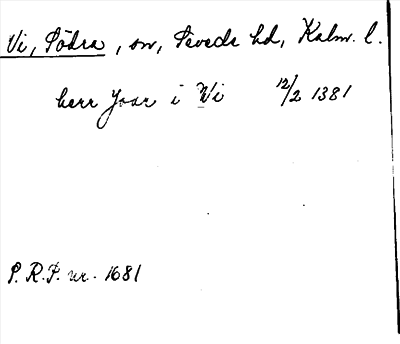 Vi, Södra, sn, Sevede hd, Kalm. l.
herr Joar i Wi 12/2 1381
P. R. P. nr. 1681